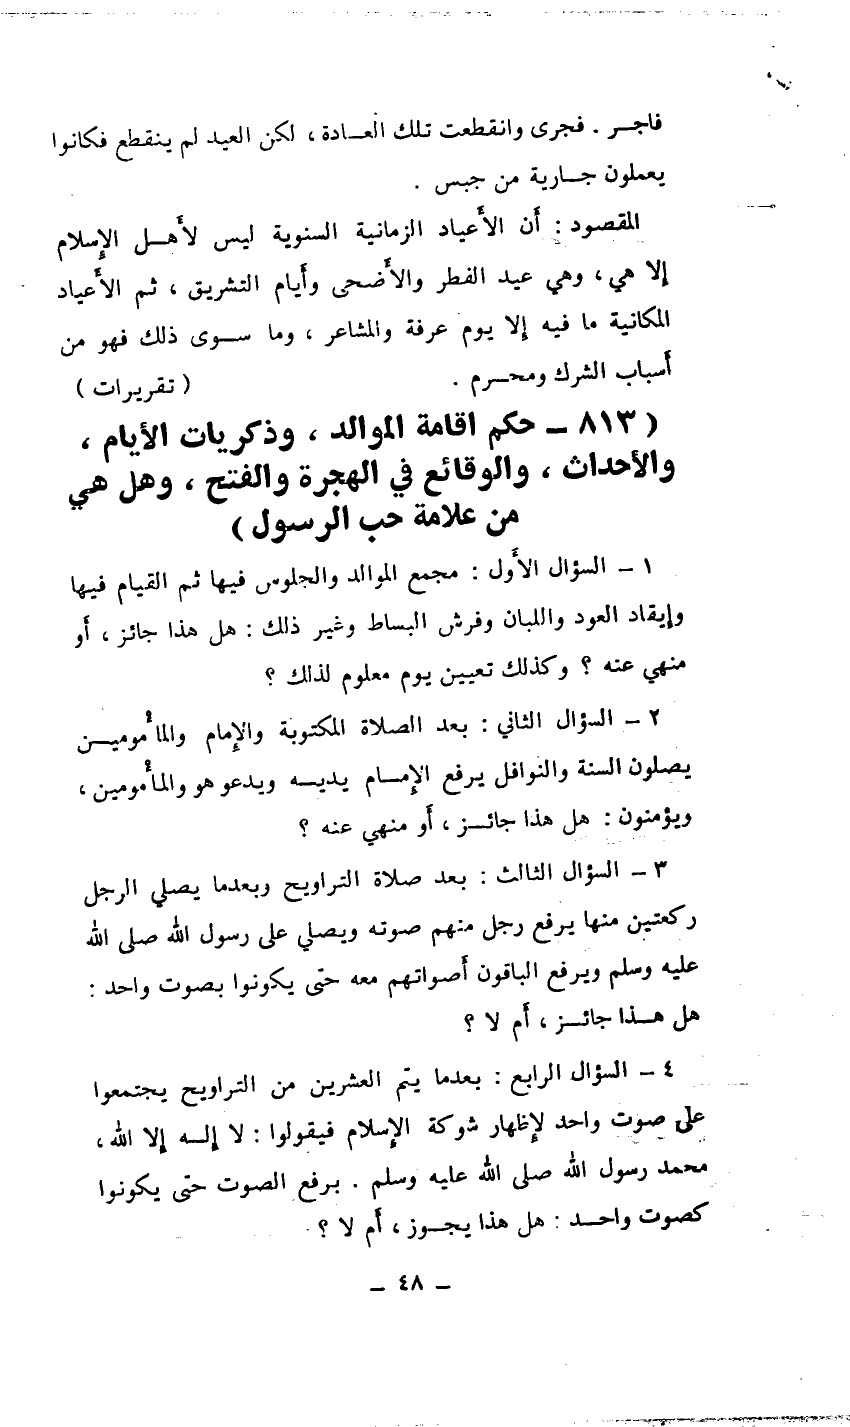 فاجــر . فجرى وانقطعت تلك العــادة ، لكن العيد لم ينقطع فكانوا
يعملون جــارية من جبس .
المقصود : أن الأعياد الزمانية السنوية ليس لأهــل الإسلام
إلا هي ، وهي عيد الفطر والأضحى وأيام التشريق ، ثم الأعياد
المكانية ما فيه إلا يوم عرفة والمشاعر ، وما ســوى ذلك فهو من
أسباب الشرك ومحــرم . ( تقريرات )
( ٨١٣ ــ حكم اقامة الموالد ، وذكريات الأيام ،
والأحداث ، والوقائع في الهجرة والفتح ، وهل هي
من علامة حب الرسول )
١ ــ السؤال الأول : مجمع الموالد والجلوس فيها ثم القيام فيها
وإيقاد العود واللبان وفرش البساط وغير ذلك : هل هذا جائز ، أو
منهي عنه ؟ وكذلك تعيين يوم معلوم لذلك ؟
٢ ــ السؤال الثاني : بعد الصلاة المكتوبة والإمام والمأموميــن
يصلون السنة والنوافل يرفع الإمــام يديــه ويدعو هو والمأمومين ،
ويؤمنون : هل هذا جائــز ، أو منهي عنه ؟
٣ ــ السؤال الثالث : بعد صلاة التراويح وبعدما يصلي الرجل
ركعتين منها يرفع رجل منهم صوته ويصلي على رسول الله صلى الله
عليه وسلم ويرفع الباقون أصواتهم معه حتى يكونوا بصوت واحد :
هل هــذا جائــز ، أم لا ؟
٤ ــ السؤال الرابع : بعدما يتم العشرين من التراويح يجتمعوا
على صوت واحد لإظهار شوكة الإسلام فيقولوا : لا إلــه إلا الله ،
محمد رسول الله صلى الله عليه وسلم . برفع الصوت حتى يكونوا
كصوت واحــد : هل هذا يجــوز ، أم لا ؟
ــ ٤٨ ــ